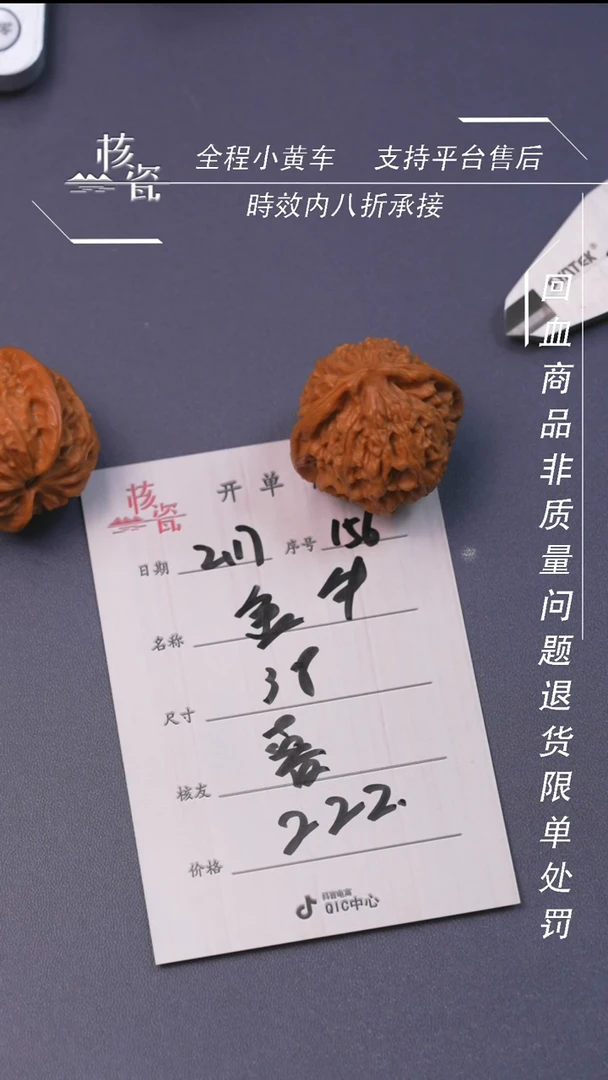 核瓷
全程小黄车 支持平台售后
時效内八折承接
回血商品非质量问题退货限单处罚
核瓷 开单
日期 2.17 序号 156
名称 金牛
尺寸 39
核友
价格 222.
抖音电商
QIC中心